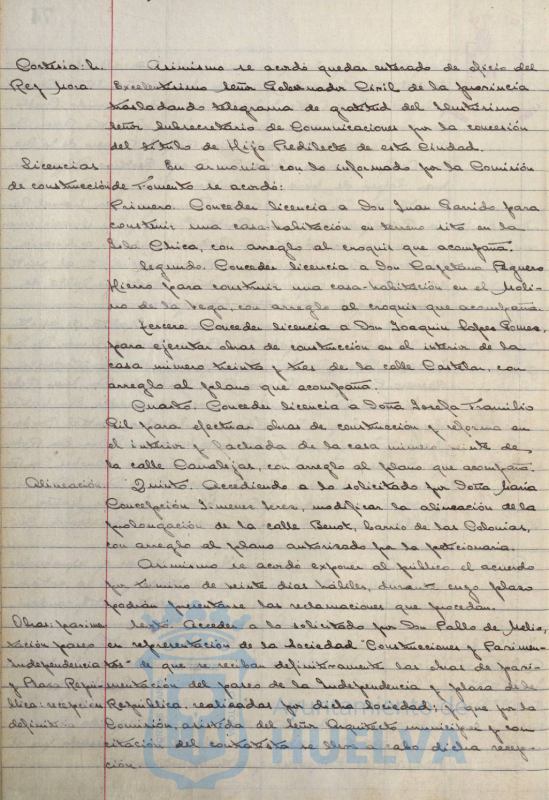 Cortesia: L. Asimismo se acordó quedar enterado de oficio del
Rey Mora Excelentisimo Señor Gobernador Civil de la provincia
trasladando telegrama de gratitud del Ilustrisimo
Señor Subsecretário de Comunicaciones por la concesión
del titulo de Hijo Predilecto de esta Ciudad.
Licencias En armonia con lo informado por la Comisión
de construcción de Fomento se acordó:
Primero. Conceder licencia a Don Juan Garrido para
construir una casa-habitación en terreno sito en la
Isla Chica, con arreglo al croquis que acompaña.
Segundo. Conceder licencia a Don Cayetano Peguero
Hierro para construir una casa-habitación en el Moli-
no de la Vega, con arreglo al croquis que acompaña.
Tercero Conceder licencia a Don Joaquin Lopez Gomez,
para ejecutar obras de construcción en el interior de la
casa número treinta y tres de la calle Castelar, con
arreglo al plano que acompaña.
Cuarto. Conceder licencia a Doña Josefa
Gil para efectuar obras de construcción y reforma en
el interior y fachada de la casa número veinte de
la calle Canalejas, con arreglo al plano que acompaña.
Alineación. Quinto. Accediendo a lo solicitado por Doña Maria
Concepción Jimenez Jerez, modificar la alineación de la
prolongación de la calle Benot, barrio de las Colonias,
con arreglo al plano autorizado por la peticionaria.
Asimismo se acordó exponer al público el acuerdo
por término de veinte dias hábiles, durante cuyo plazo
podrán presentarse las reclamaciones que procedan.
Obras: pavimen- Sexto. Acceder a lo solicitado por Don Pablo de Melio,
tación paseo en representación de la Sociedad "Construcciones y Pavimen-
Independencia tos" de que se reciban definitivamente las obras de pavi-
y Plaza Repú- mentación del paseo de la Independencia y plaza de la
blica: recepción Republica, realizadas por dicha Sociedad; y que por la
definitiva Comisión, asistida del Señor Arquitecto municipal y con
citación del contratista se lleve a cabo dicha recep-
ción.
Ayuntamiento de
HUELVA